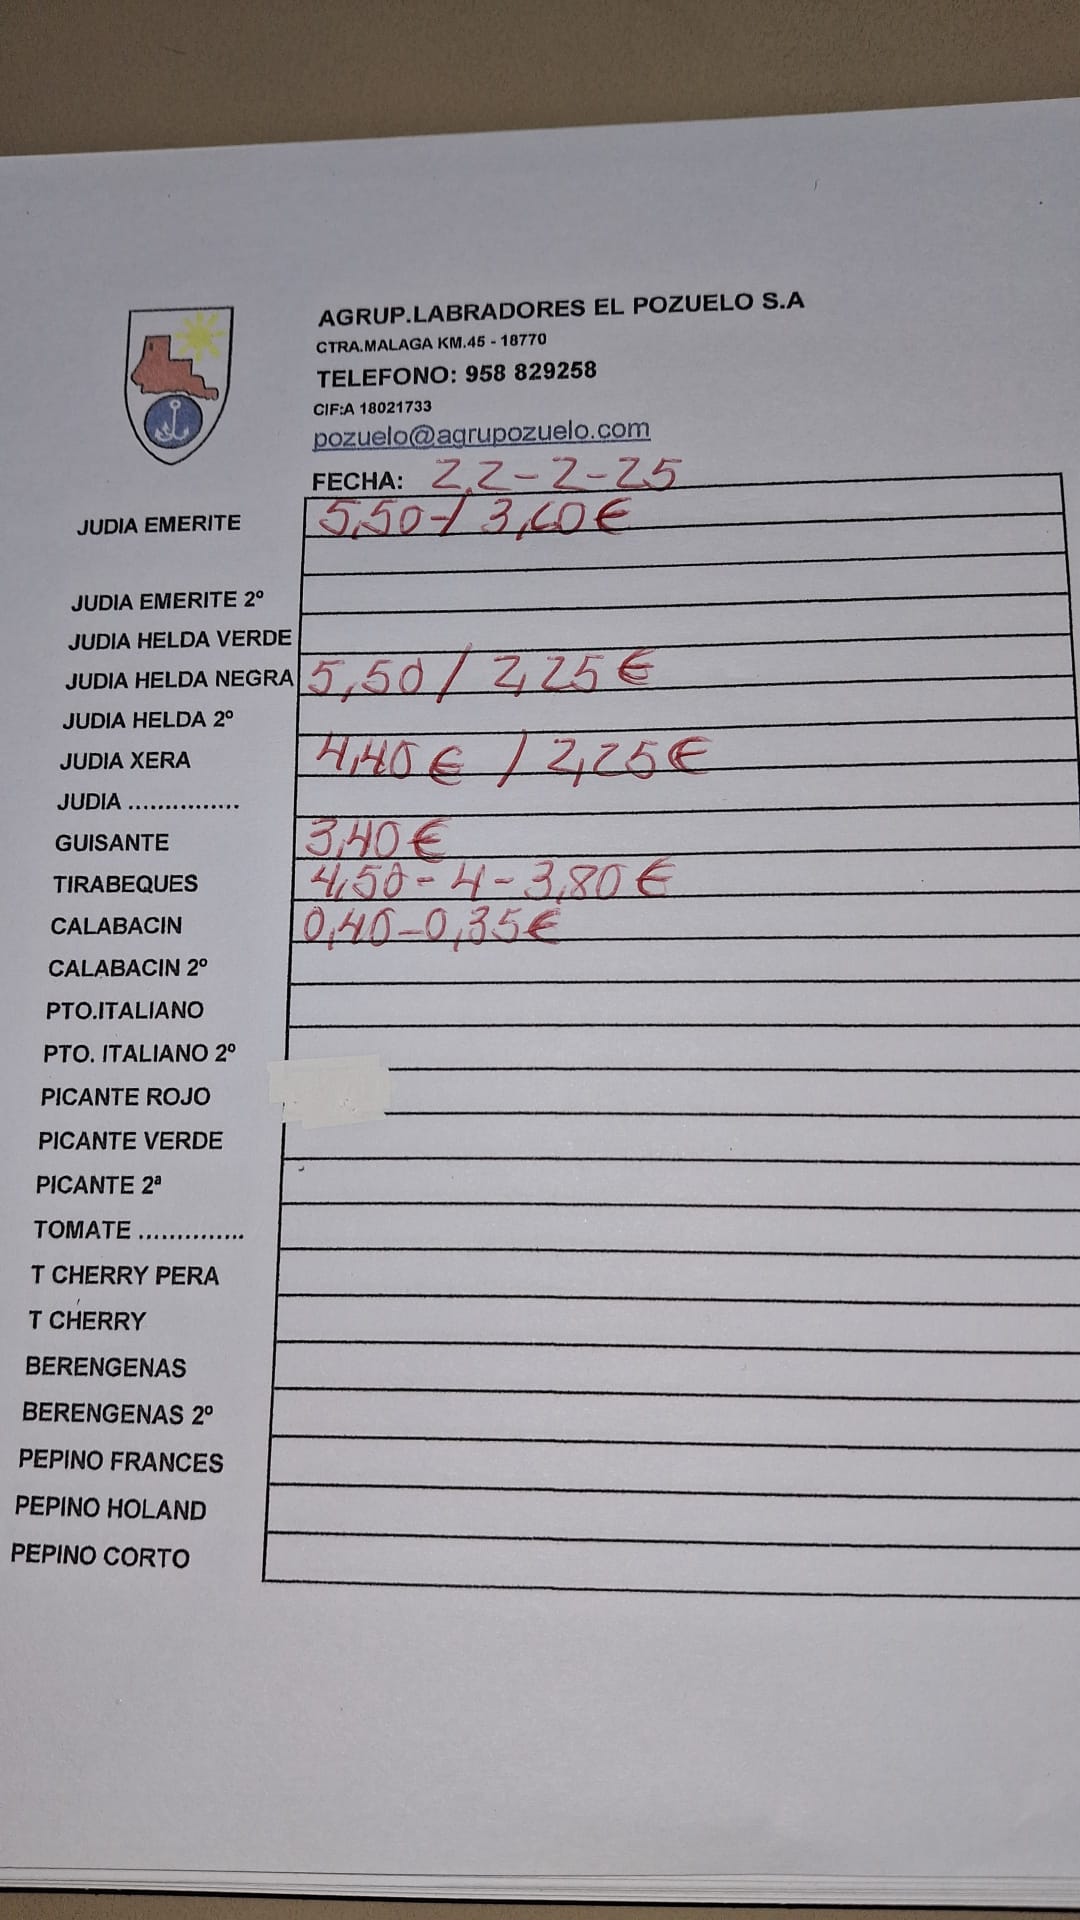 AGRUP.LABRADORES EL POZUELO S.A
CTRA.MALAGA KM.45 - 18770
TELEFONO: 958 829258
CIF:A 18021733
pozuelo@agrupozuelo.com
FECHA: 22-2-25
JUDIA EMERITE 5,50-/ 3,60€
JUDIA EMERITE 2º
JUDIA HELDA VERDE
JUDIA HELDA NEGRA 5,50 / 2,25€
JUDIA HELDA 2º
JUDIA XERA 4,40€ / 2,25€
JUDIA ...............
GUISANTE 3,40€
TIRABEQUES 4,50-4-3,80€
CALABACIN 0,40-0,35€
CALABACIN 2º
PTO.ITALIANO
PTO. ITALIANO 2º
PICANTE ROJO
PICANTE VERDE
PICANTE 2ª
TOMATE ..............
T CHERRY PERA
T CHERRY
BERENGENAS
BERENGENAS 2º
PEPINO FRANCES
PEPINO HOLAND
PEPINO CORTO